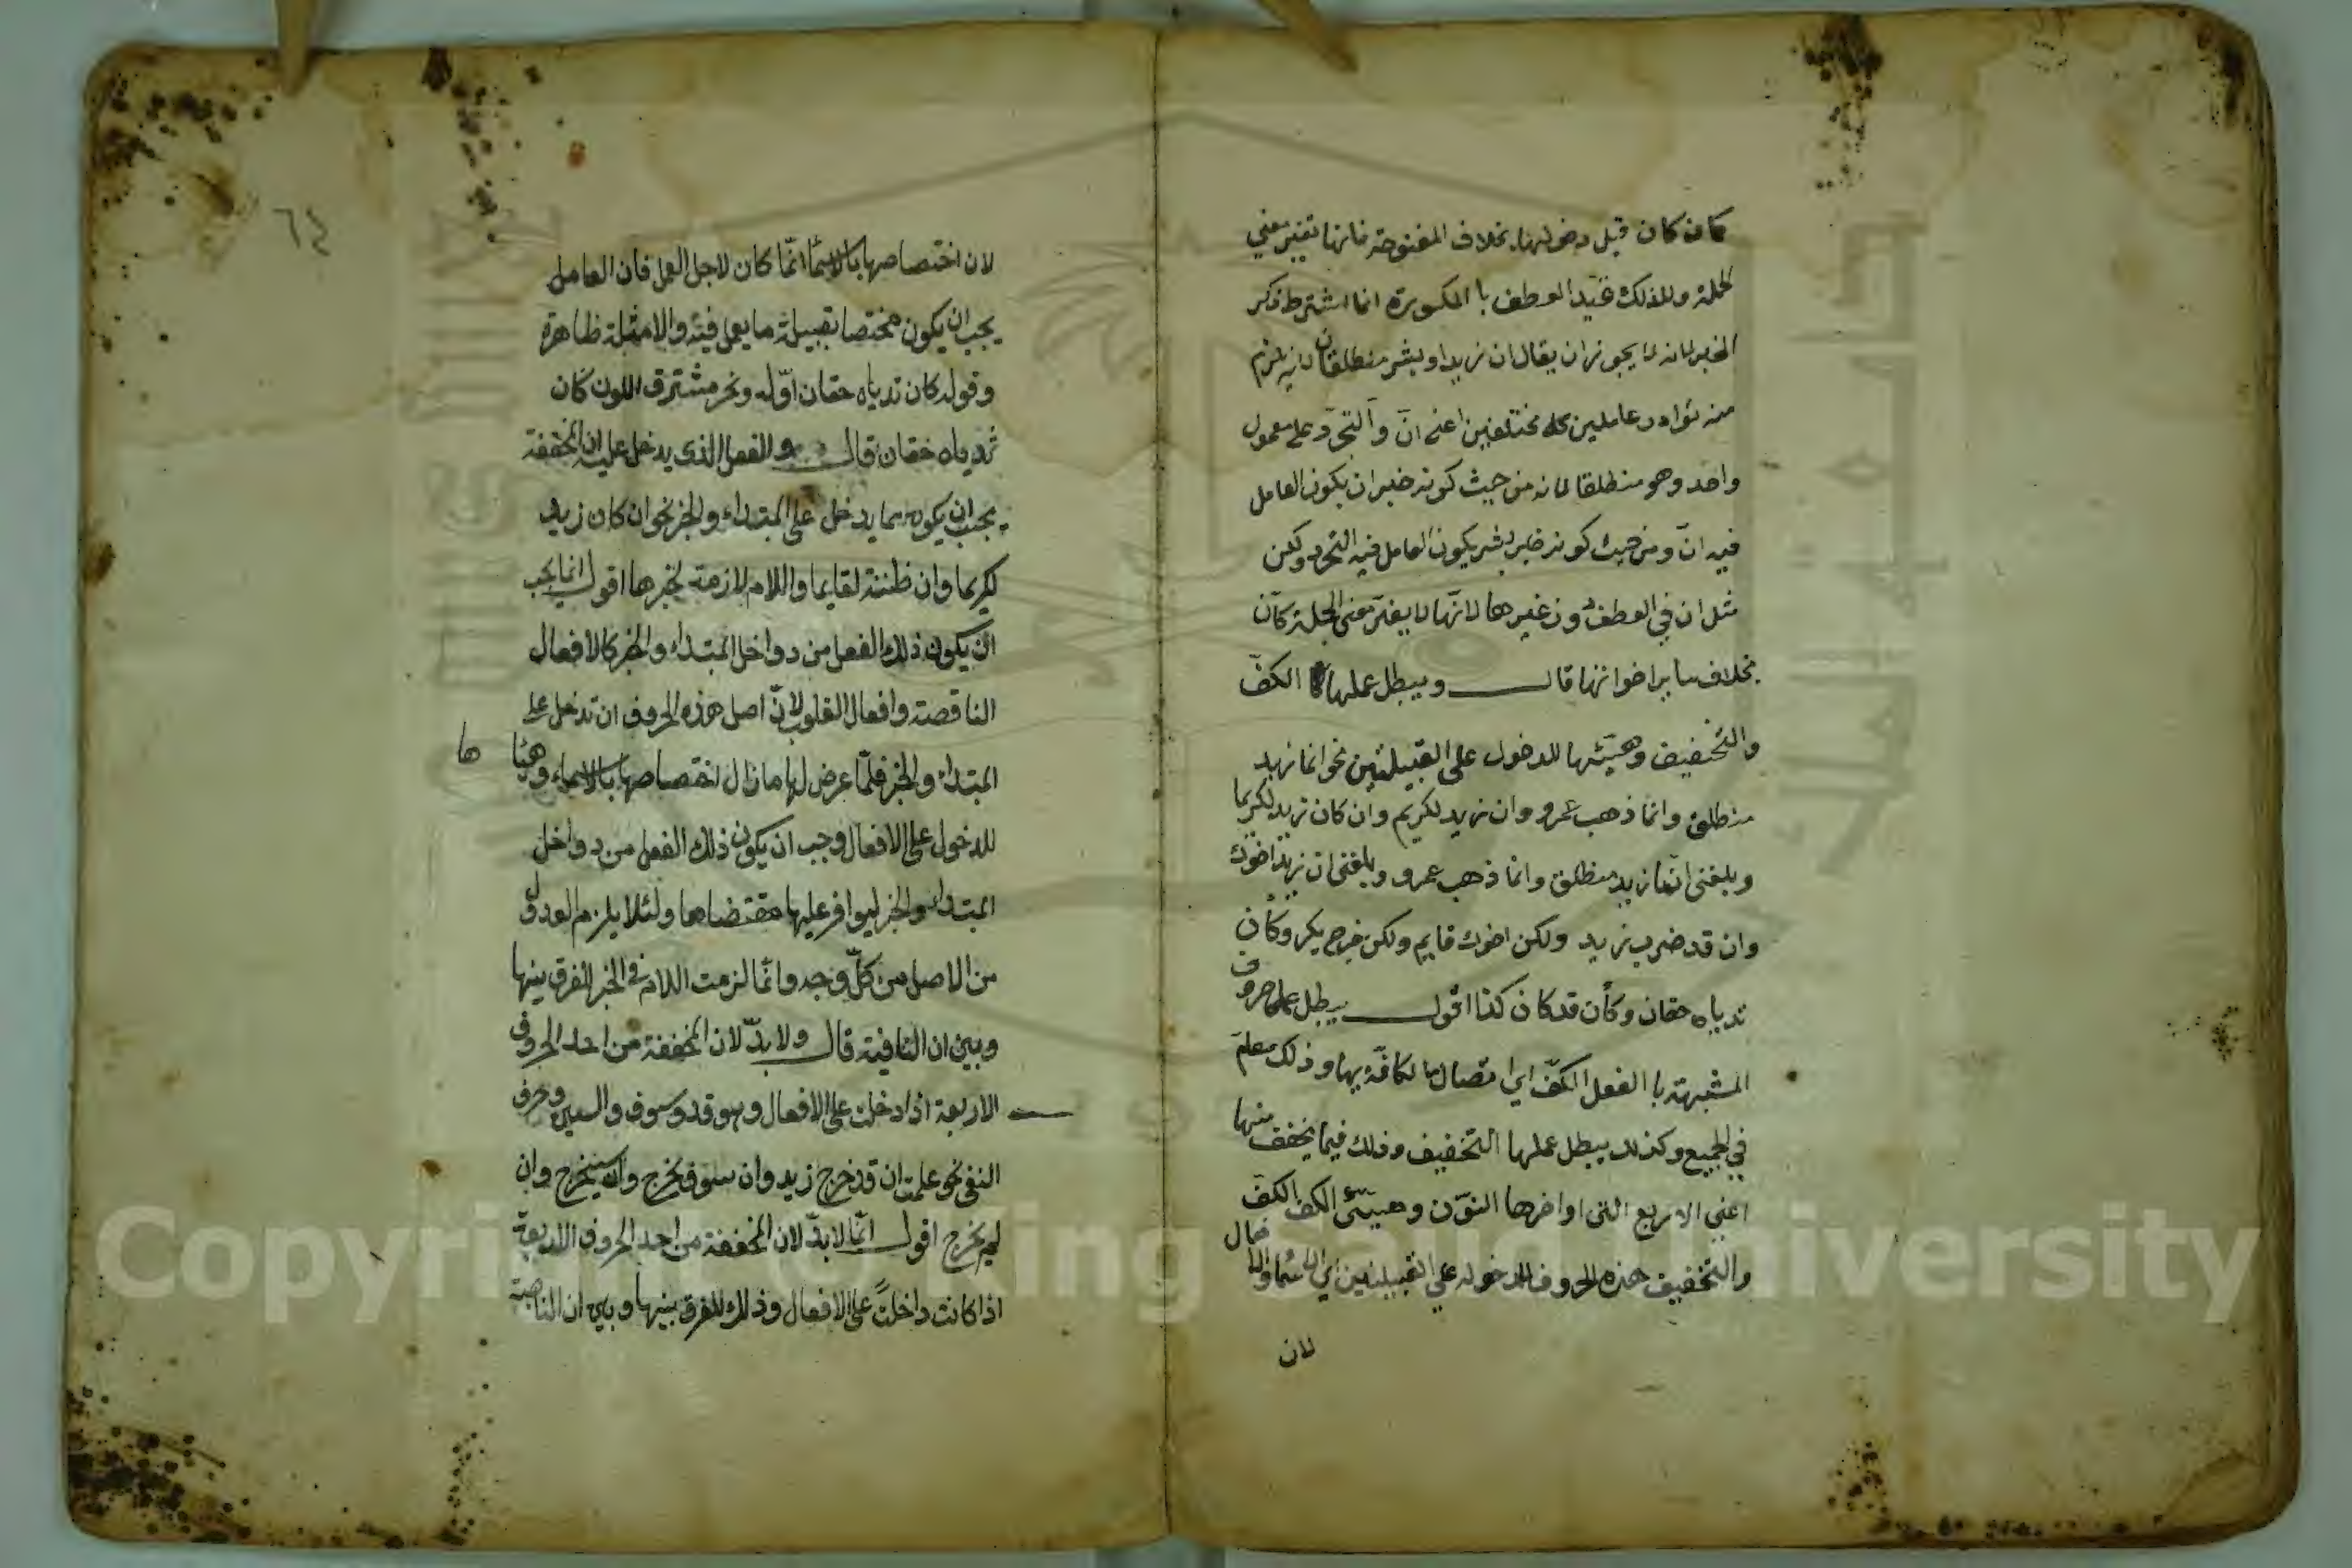 كما ن كان قبل دخولها بخلاف المفتوحة فانها تغير معنى
الجملة ولذلك قيد العطف با المكسورة انما اشترط ذكر
الخبر لانه لا يجوز ان يقال ان زيدا وبشر منطلقان لانه يلزم
منه توارد عاملين مختلفين اعني انّ والتجرّد على معمول
واحد وهو منطلقا لانه من حيث كونه خبر ان يكون العامل
فيه انّ ومن حيث كونه خبر بشر يكون العامل فيه التجرد ولكن
مثل ان في العطف دون غيرها لانّها لا يغيّر معنى الجملة كانّ
بخلاف ساير اخواتها قال ويبطل عملها الكفّ
والتخفيف وهيّئها للدخول على القبيلتين نحو انما زيد
منطلق وانما ذهب عمرو وان زيد لكريم وان كان زيد لكريما
وبلغني انما زيد منطلق وانما ذهب عمرو وبلغني ان زيد اخوك
وان قد ضرب زيد ولكن اخوك قايم ولكن خرج بكر وكأن
ثدياه حقان وكأن قد كان كذا اقول يبطل عمل حروف
المشبهة با الفعل الكفّ اي اتصال ما الكافّة بها وذلك معلم
في الجميع وكذلك يبطل عملها التخفيف وذلك فيما يخفف منها
اعني الاربع التي اواخرها النوّن وهيّئ الكف الكفّ
والتخفيف هذه الحروف للدخول على القبيلتين اي الاسماء والافعال
لان
٦٤
لان اختصاصها بالاسماء انّما كان لاجل العمل فان العامل
يجب ان يكون مختصا بقبيلة ما يعمل فيه والامثلة ظاهرة
وقوله كان ثدياه حقان اوّله ونحر مشترق اللون كان
ثدياه حقان قال والفعل الذى يدخل عليه ان المخففة
يجب ان يكون مما يدخل على المبتداء والخبر نحو ان كان زيد
لكريما وان ظننته لقايما واللام لازمة لخبرها اقول انما يجب
ان يكون ذلك الفعل من دواخل المبتداء والخبر كالافعال
الناقصة وافعال القلوب لانّ اصل هذه الحروف ان تدخل على
المبتداء والخبر فلمّا عرض لها ما زال اختصاصها بالاسماء وهيّا
ها
للدخول على الافعال وجب ان يكون ذلك الفعل من دواخل
المبتداء والخبر ليوافر عليها مقتضاها ولئلا يلزم العدول
من الاصل من كلّ وجه وانّما لزمت اللام في الخبر للفرق بينها
وبين ان النافية قال ولا بدّ لان المخففة من احد الحروف
الاربعة اذا دخلت على الافعال وهو قد وسوف والسين وحرف
النفى نحو علمت ان قد خرج زيد وان سوف يخرج وان سيخرج وان
لم يخرج اقول انّما لا بدّ لان المخففة من احد الحروف الاربعة
اذا كانت داخلة على الافعال وذلك للفرق بينها وبين ان الناصبة
Copyright © King Saud University